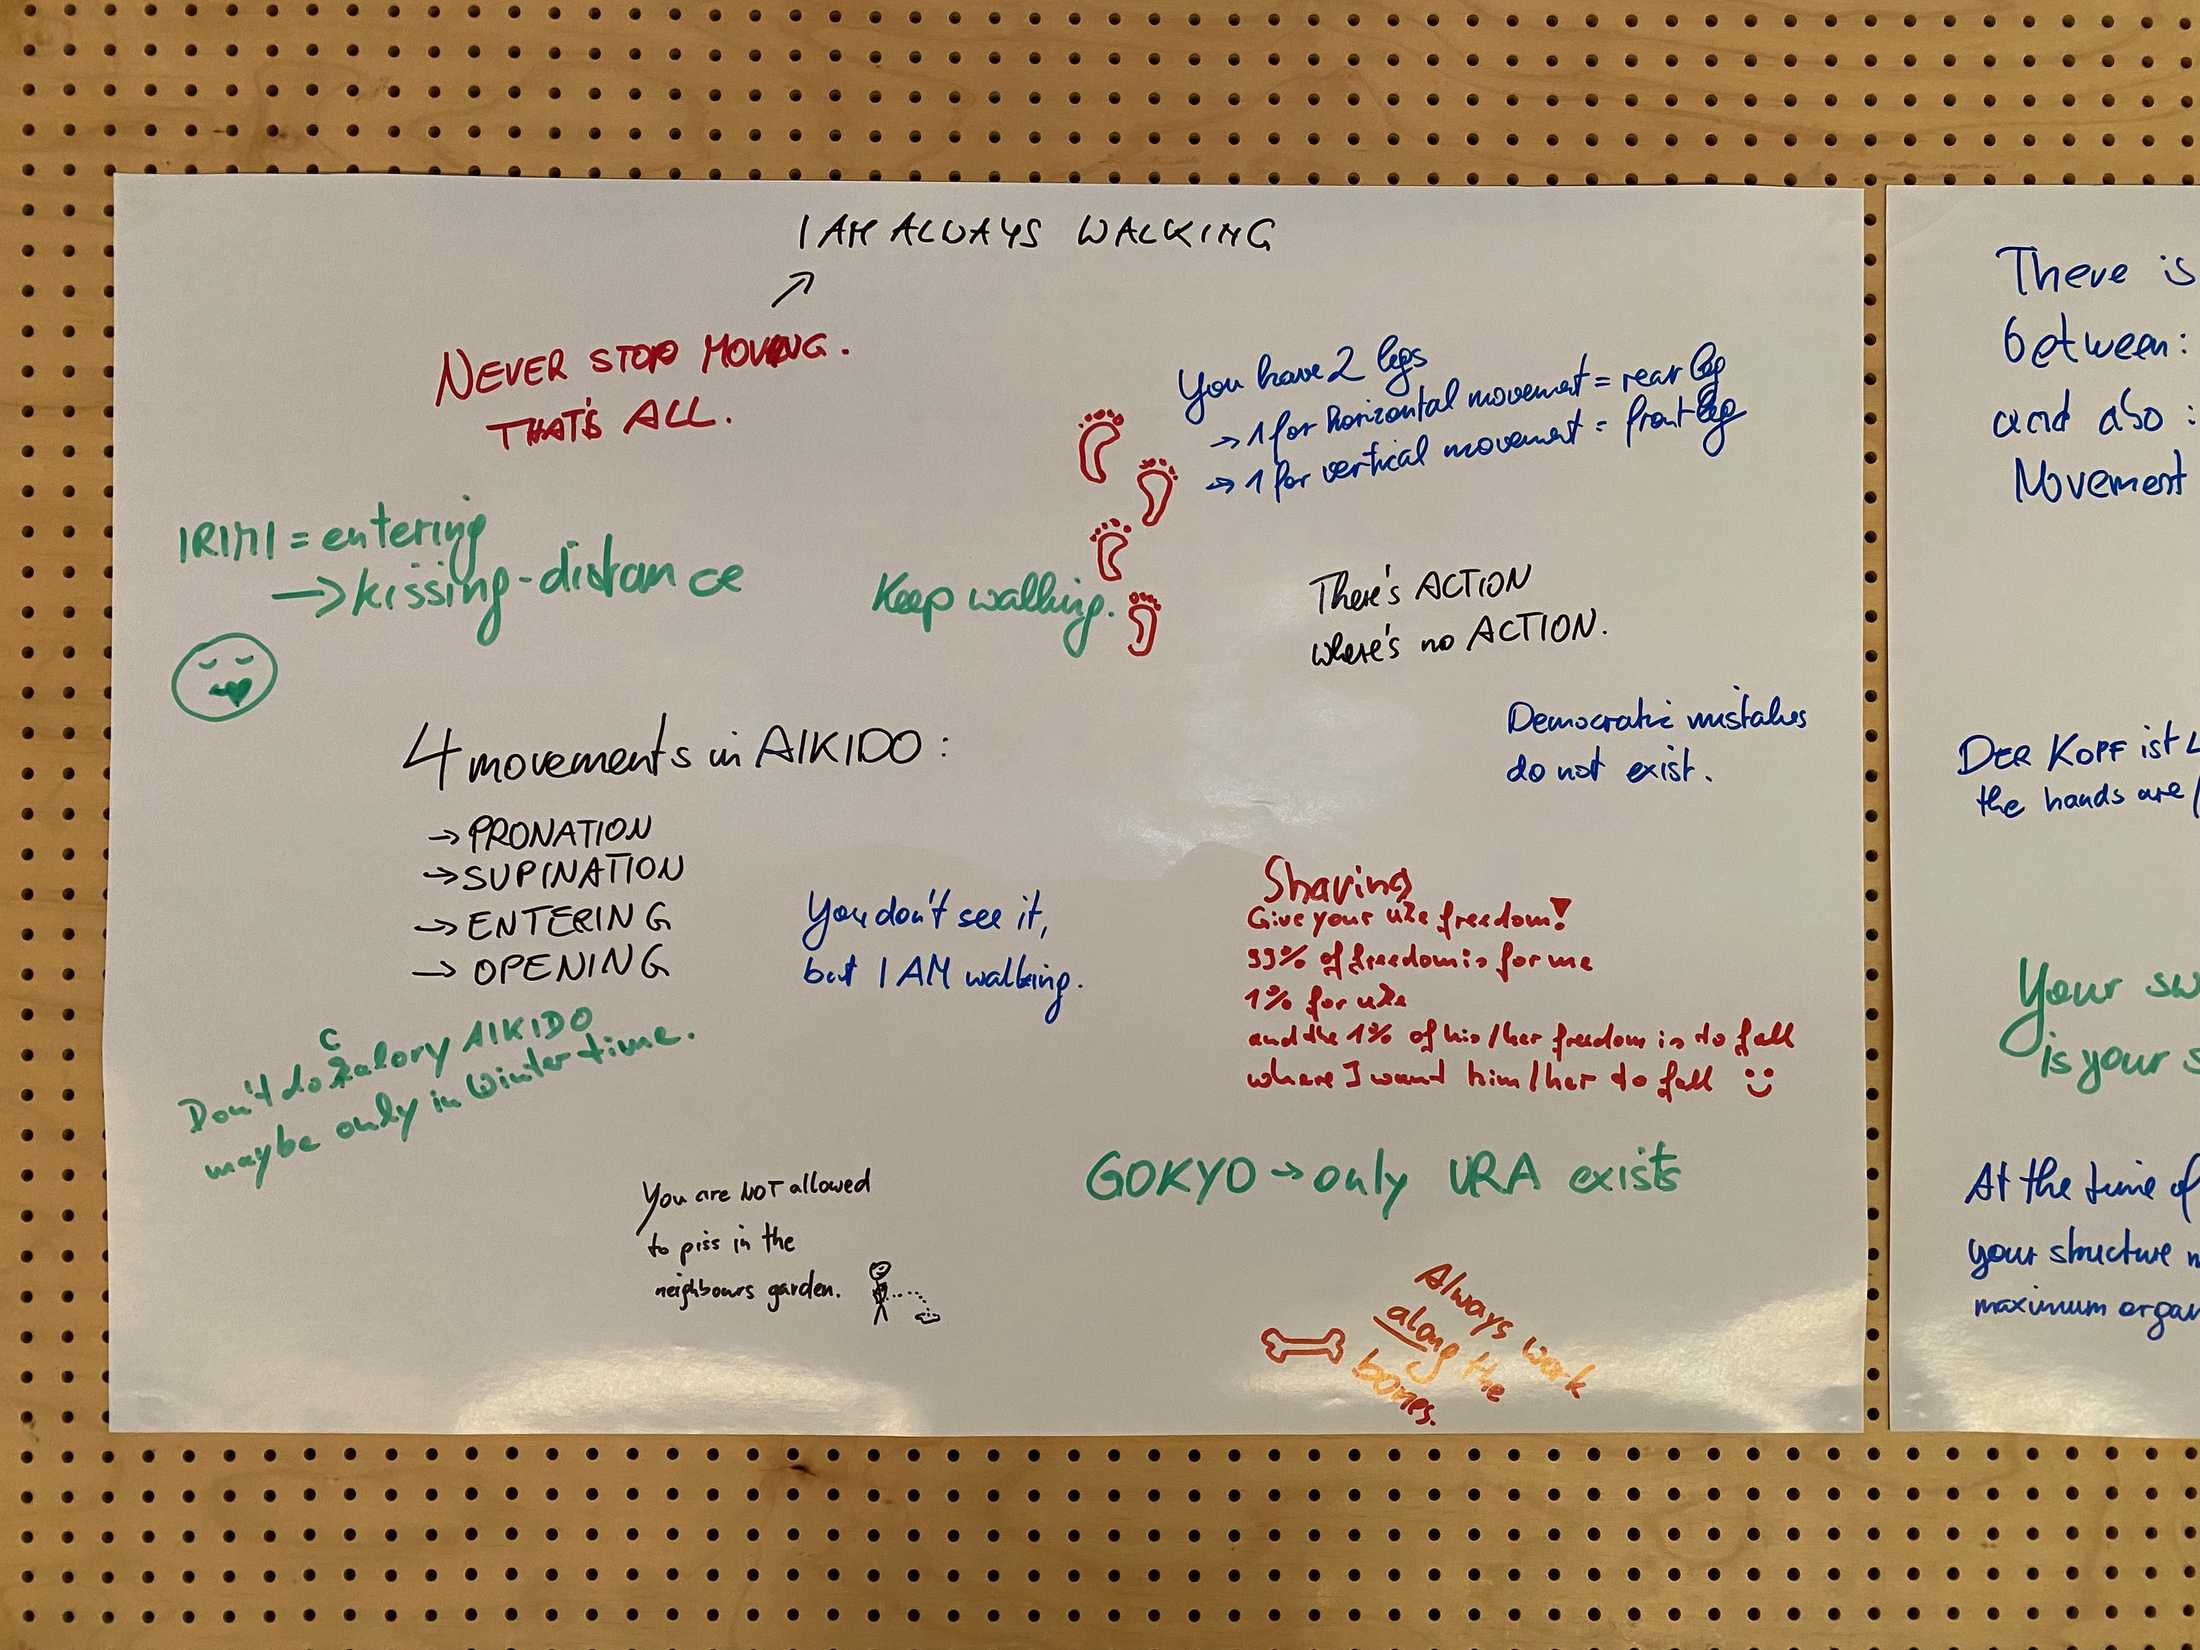 I AM ALWAYS WALKING
NEVER STOP MOVING.
THAT'S ALL.
You have 2 legs
→ 1 for horizontal movement = rear leg
→ 1 for vertical movement = front leg
IRIMI = entering
→ kissing-distance
Keep walking.
There's ACTION
where's no ACTION.
Democratic mistakes
do not exist.
4 movements in AIKIDO:
→ PRONATION
→ SUPINATION
→ ENTERING
→ OPENING
You don't see it,
but I AM walking.
Sharing
Give your uke freedom!
99% of freedom is for me
1% for uke
and the 1% of his/her freedom is to fall
where I want him/her to fall :)
Don't do Calory AIKIDO
maybe only in Wintertime.
GOKYO → only URA exists
You are NOT allowed
to piss in the
neighbours garden.
Always work
along the
bones.
There is
between:
and also:
Movement
DER KOPF ist
the hands are
Your
is your
At the time of
your structure
maximum